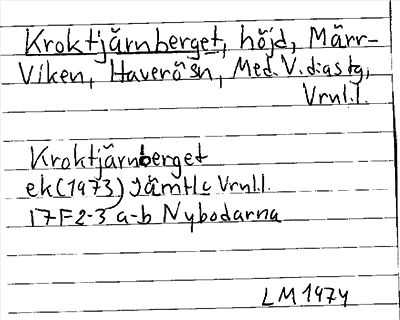 Kroktjärnberget, höjd, Märr-
viken, Haverö sn, Med. V. diastg,
Vrnl.l.
Kroktjärnberget
ek (1973) Jämtl< Vrnl.l.
17F2-3 a-b Nybodarna
LM 1974